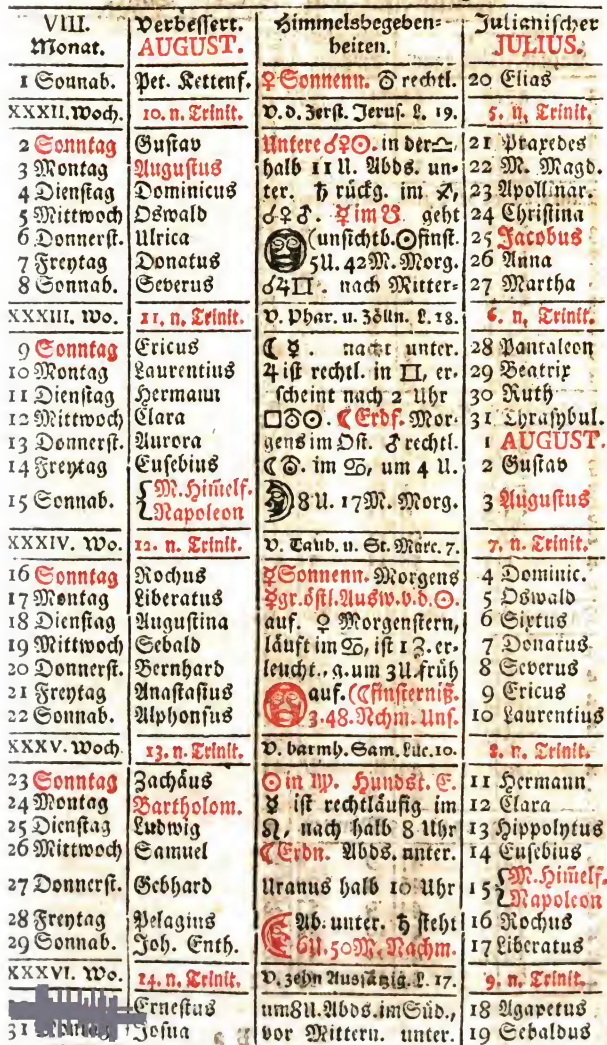 VIII. Monat. Verbessert. AUGUST. Himmelsbegeben= heiten. Julianischer JULIUS.
1 Sonnab. Pet. Kettenf. ♀ Sonnenn. ♅ rechtl. 20 Elias
XXXII. Woch. 10. n. Trinit. V. d. Zerst. Jerus. L. 19. 5. n. Trinit.
2 Sonntag Gustav Untere ☌♀☉. in der ♎ 21 Praxedes
3 Montag Augustus halb 11 U. Abds. un= 22 M. Magd.
4 Dienstag Dominicus ter. ♄ rückg. im ♐, 23 Apollinar.
5 Mittwoch Oswald ☌♀♂. ☿ im ☋. geht 24 Christina
6 Donnerst. Ulrica (unsichtb. ☉finst. 25 Jacobus
7 Freytag Donatus 5U. 42M. Morg. 26 Anna
8 Sonnab. Severus ☌♃♊. nach Mitter= 27 Martha
XXXIII. Wo. 11. n. Trinit. V. Phar. u. Zölln. L. 18. 6. n. Trinit.
9 Sonntag Ericus ☾ ☿. nacht unter. 28 Pantaleon
10 Montag Laurentius ♃ ist rechtl. in ♊, er= 29 Beatrix
11 Dienstag Hermann scheint nach 2 Uhr 30 Ruth
12 Mittwoch Clara □♅☉. ☾ Erdf. Mor= 31 Thrasybul.
13 Donnerst. Aurora gens im Ost. ♂ rechtl. 1 AUGUST.
14 Freytag Eusebius ☾♅. im ♋, um 4 U. 2 Gustav
15 Sonnab. {M. Himelf. Napoleon 8 U. 17 M. Morg. 3 Augustus
XXXIV. Wo. 12. n. Trinit. V. Taub. u. St. Marc. 7. 7. n. Trinit.
16 Sonntag Rochus ☿ Sonnenn. Morgens 4 Dominic.
17 Montag Liberatus ☿ gr. östl. Ausw. v. d. ☉. 5 Oswald
18 Dienstag Augustina auf. ♀ Morgenstern, 6 Sixtus
19 Mittwoch Sebald läuft im ♋, ist 1 Z. er= 7 Donatus
20 Donnerst. Bernhard leucht., g. um 3 U. früh 8 Severus
21 Freytag Anastasius auf. (☾finsterniß. 9 Ericus
22 Sonnab. Alphonsus 3. 48. Nchm. Uns. 10 Laurentius
XXXV. Woch. 13. n. Trinit. V. barmh. Sam. Luc. 10. 8. n. Trinit.
23 Sonntag Zachäus ☉ in ♍. Hundst. E. 11 Hermann
24 Montag Bartholom. ☿ ist rechtläufig im 12 Clara
25 Dienstag Ludwig ♌, nach halb 8 Uhr 13 Hippolytus
26 Mittwoch Samuel ☾ Erdn. Abds. unter. 14 Eusebius
27 Donnerst. Gebhard Uranus halb 10 Uhr 15 {M. Himelf. Napoleon
28 Freytag Pelagius Ab. unter. ♄ steht 16 Rochus
29 Sonnab. Joh. Enth. 6U. 50M. Nachm. 17 Liberatus
XXXVI. Wo. 14. n. Trinit. V. zehn Aussätzig. L. 17. 9. n. Trinit.
Ernestus um 8 U. Abds. im Süd., 18 Agapetus
31 Montag Josua vor Mittern. unter. 19 Sebaldus